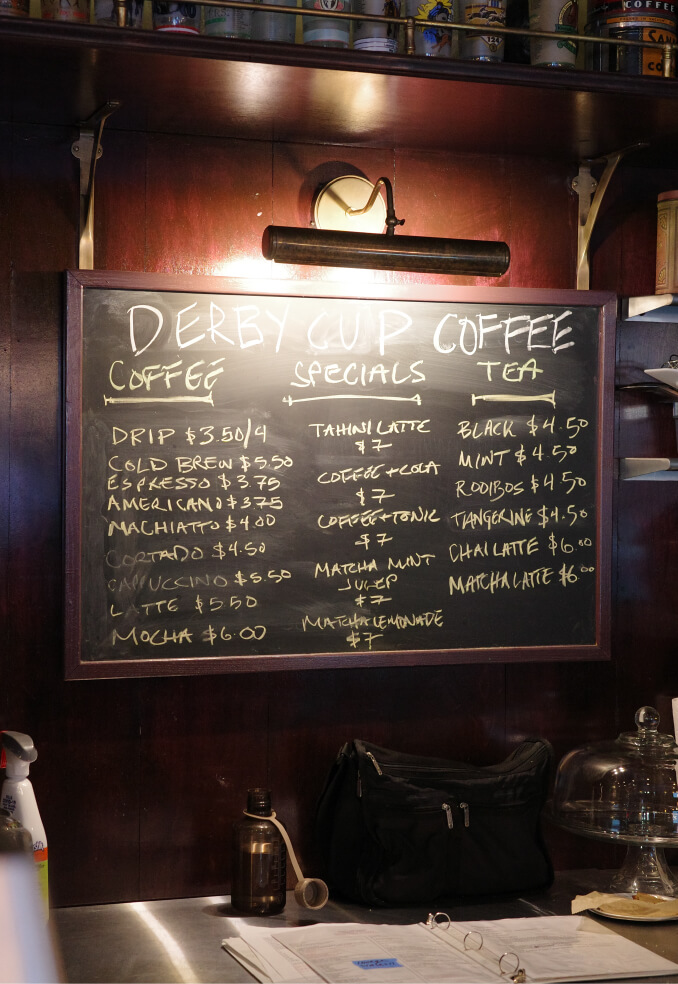 COFFEE
DERBY CUP COFFEE
COFFEE
DRIP $3.50/4
COLD BREW $5.50
ESPRESSO $3.75
AMERICANO $3.75
MACHIATTO $4.00
CORTADO $4.50
CAPPUCCINO $5.50
LATTE $5.50
MOCHA $6.00
SPECIALS
TAHINI LATTE
$7
COFFEE + COLA
$7
COFFEE + TONIC
$7
MATCHA MINT
JULEP
$7
MATCHA LEMONADE
$7
TEA
BLACK $4.50
MINT $4.50
ROOIBOS $4.50
TANGERINE $4.50
CHAI LATTE $6.00
MATCHA LATTE $6.00